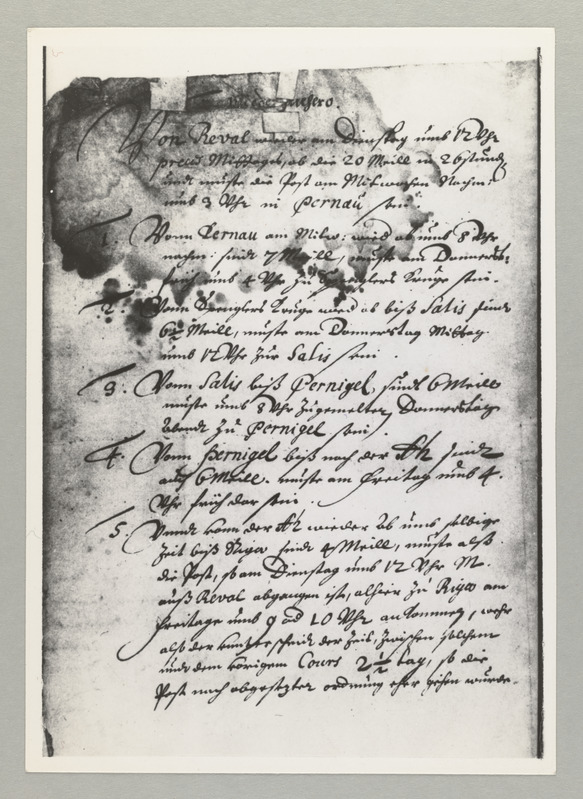 Von Reval wieder am Dienstag umb 12 Uhr
precis Mittages, ab die 20 Meill in 26 stund,
und müste die Post am Mitwochen Nachm:
umb 3 Uhr in Pernau sein.
1. Vonn Pernau am Mitw: wird ab umb 8 Uhr
nachm: sindt 7 Meill, müste am Donnerst:
früh umb 4 Uhr zu Spenglers Kruge sein.
2. Vonn Spenglers Kruge wird ab biß Salis sindt
6½ Meill, müste am Donnerstag Mittag
umb 12 Uhr zur Salis sein.
3. Vonn Salis biß Pernigel, sindt 6 Meill
müste umb 8 Uhr Zugemelter Donnerstag
Abendt zu Pernigel sein.
4. Vonn Pernigel biß nach der Aa sindt
auch 6 Meill. müste am Freitag umb 4.
Uhr früh dar sein.
5. Vonn der Aa wieder ab umb selbige
Zeit biß Riga sindt 4 Meill, müste alß
die Post, so am Dienstag umb 12 Uhr M.
auß Reval abgangen ist, alhier zu Riga am
Freitage umb 9 ad 10 Uhr ankommen, wehr
also der unterscheidt der Zeit, zwischen solchem
und dem vorigem Cours 2½ tag, so die
Post nach abgesetzter ordnung eher gehen würde.